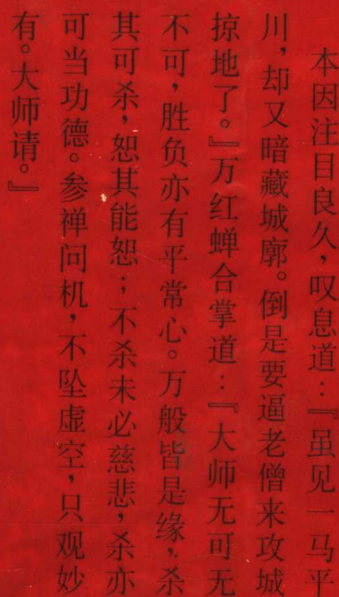 本因注目良久，叹息道：『虽见一马平
川，却又暗藏城廓。倒是要逼老僧来攻城
掠地了。』万红蝉合掌道：『大师无可无
不可，胜负亦有平常心。万般皆是缘，杀
其可杀，恕其能恕；不杀未必慈悲，杀亦
可当功德。参禅问机，不坠虚空，只观妙
有。大师请。』